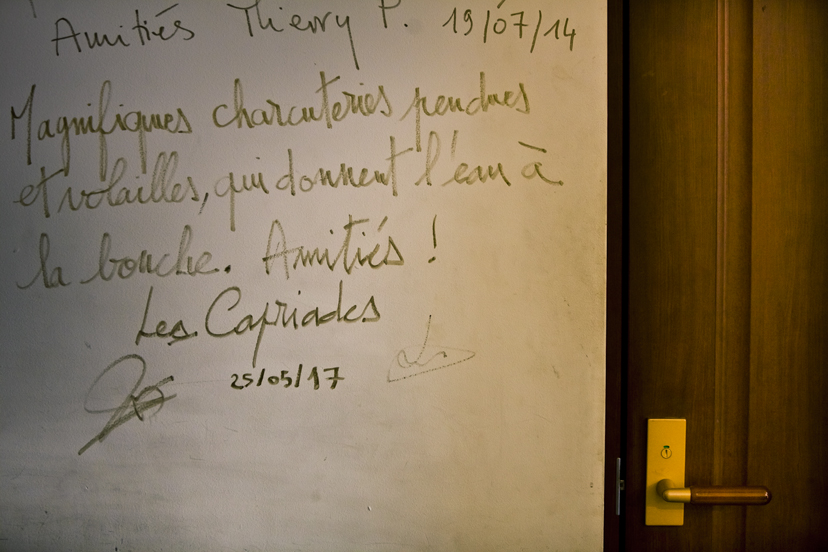 Amitiés Thierry P. 19/07/14
Magnifiques charcuteries pendues
et volailles, qui donnent l'eau à
la bouche. Amitiés !
Les Capriades
25/05/17